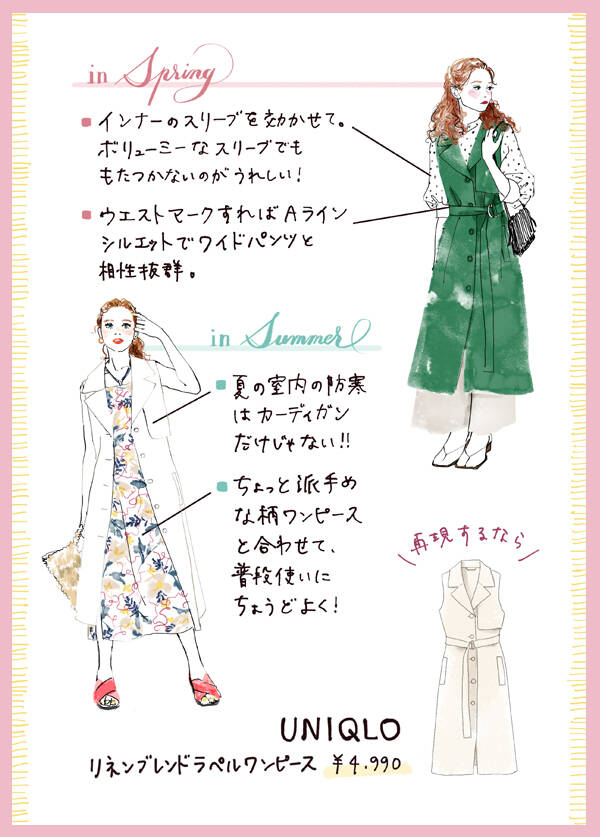 in Spring
インナーのスリーブを効かせて。
ボリューミーなスリーブでも
もたつかないのがうれしい!
ウエストマークすればAライン
シルエットでワイドパンツと
相性抜群。
in Summer
夏の室内の防寒
はカーディガン
だけじゃない!!
ちょっと派手め
な柄ワンピース
と合わせて、
普段使いに
ちょうどよく!
再現するなら
UNIQLO
リネンブレンドラペルワンピース ¥4.990